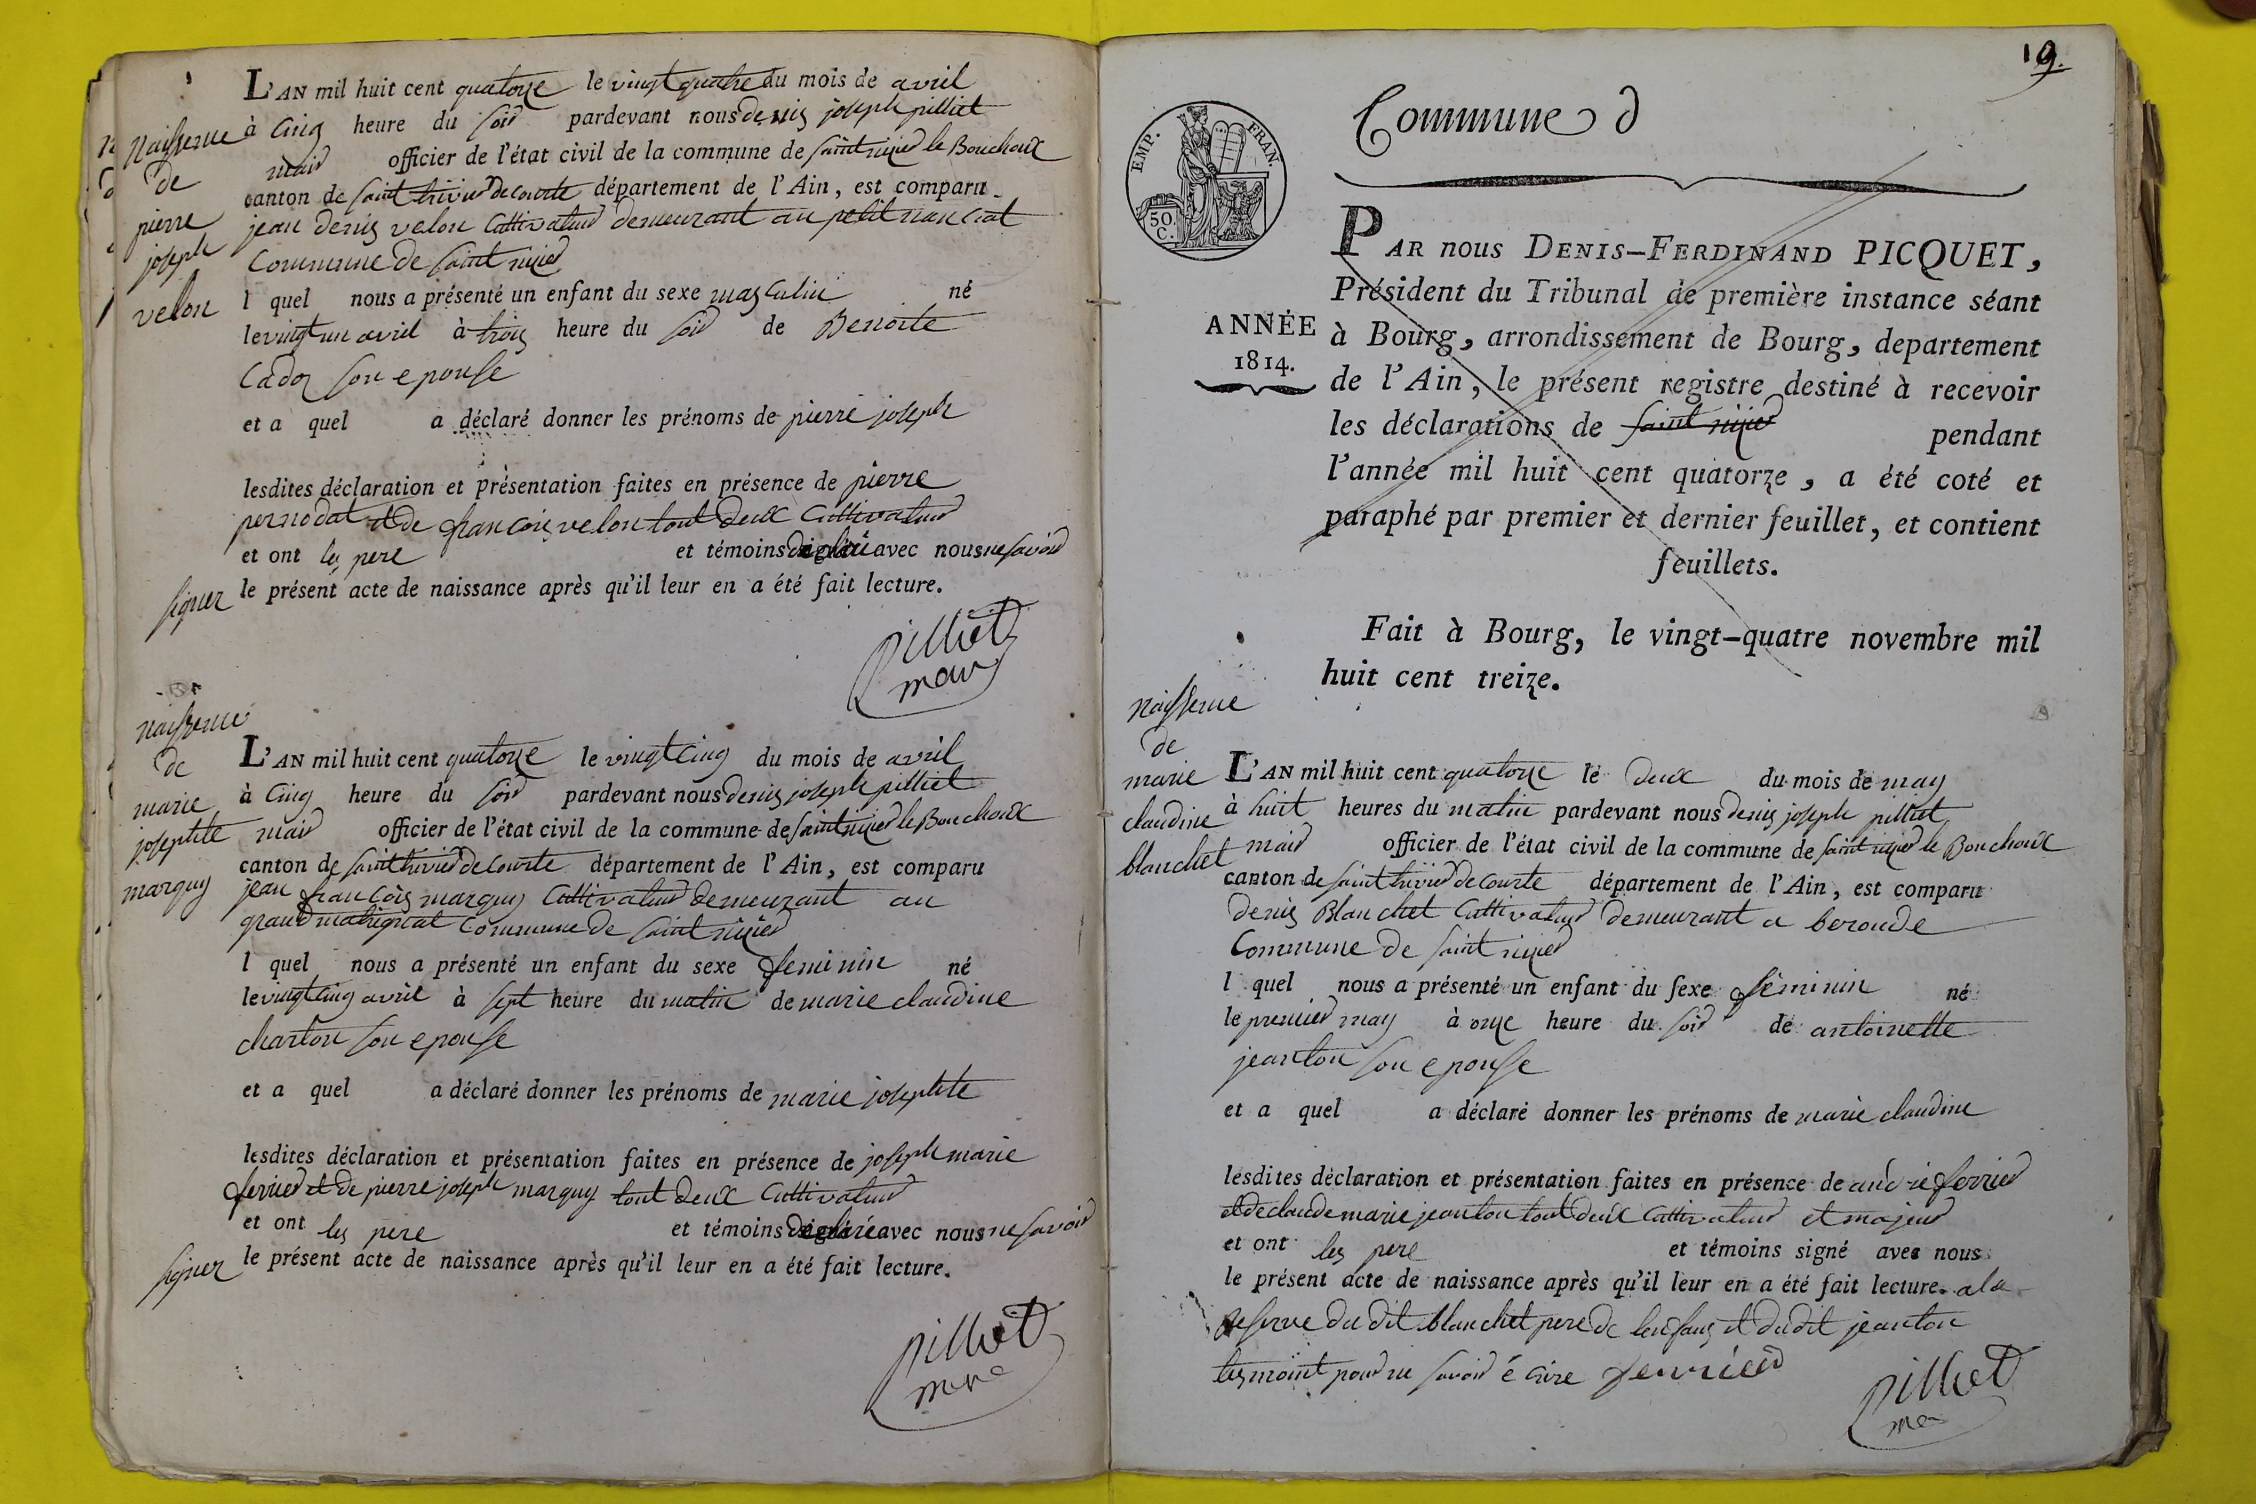 naissence
de
pierre
joseph
velon
L'AN mil huit cent quatorze le vingt quatre du mois de avril
à cinq heure du soir pardevant nous denis joseph pilliet
mair officier de l'état civil de la commune de saint nizier le Bouchoux
canton de saint trivier de courte département de l'Ain, est comparu
jean denis velon cultivateur demeurant au petit nan crat
commune de saint nizier
l quel nous a présenté un enfant du sexe masculin né
le vingt un avril à trois heure du soir de Benoite
Cadoz son epouse
et a quel a déclaré donner les prénoms de pierre joseph
lesdites déclaration et présentation faites en présence de pierre
pernodat et de francois velon tout deux cultivateur
et ont les pere et témoins déclaré avec nous ne savoir
signer le présent acte de naissance après qu'il leur en a été fait lecture.
pilliet
mair
naissence
de
marie
josephte
marquy
L'AN mil huit cent quatorze le vingt cinq du mois de avril
à cinq heure du soir pardevant nous denis joseph pilliet
mair officier de l'état civil de la commune de saint nizier le Bouchoux
canton de saint trivier de courte département de l'Ain, est comparu
jean françois marquy cultivateur demeurant au
grand matignat commune de saint nizier
l quel nous a présenté un enfant du sexe feminin né
le vingt cinq avril à sept heure du matin de marie claudine
charton son epouse
et a quel a déclaré donner les prénoms de marie josephte
lesdites déclaration et présentation faites en présence de joseph marie
ferrier et de pierre joseph marquy tout deux cultivateur
et ont les pere et témoins déclaré avec nous ne savoir
signer le présent acte de naissance après qu'il leur en a été fait lecture.
pilliet
19.
Commune d
EMP. FRAN.
50 C.
ANNÉE
1814.
PAR nous DENIS-FERDINAND PICQUET,
Président du Tribunal de première instance séant
à Bourg, arrondissement de Bourg, departement
de l'Ain, le présent registre destiné à recevoir
les déclarations de saint nizier pendant
l'année mil huit cent quatorze, a été coté et
paraphé par premier et dernier feuillet, et contient
feuillets.
Fait à Bourg, le vingt-quatre novembre mil
huit cent treize.
naissence
de
marie
claudine
blanchet
L'AN mil huit cent quatorze le deux du mois de may
à huit heures du matin pardevant nous denis joseph pilliet
mair officier de l'état civil de la commune de saint nizier le Bouchoux
canton de saint trivier de courte département de l'Ain, est comparu
denis Blanchet cultivateur demeurant a beroude
commune de saint nizier
l quel nous a présenté un enfant du sexe féminin né
le premier may à onze heure du soir de antoinette
jeanton son epouse
et a quel a déclaré donner les prénoms de marie claudine
lesdites déclaration et présentation faites en présence de andré ferrier
et de claude marie jeanton tout deux cultivateur et majeur
et ont les pere et témoins signé avec nous
le présent acte de naissance après qu'il leur en a été fait lecture. a la
reserve du dit blanchet pere de lenfans et du dit jeanton
tesmoint pour ne savoir écrire ferrier
pilliet